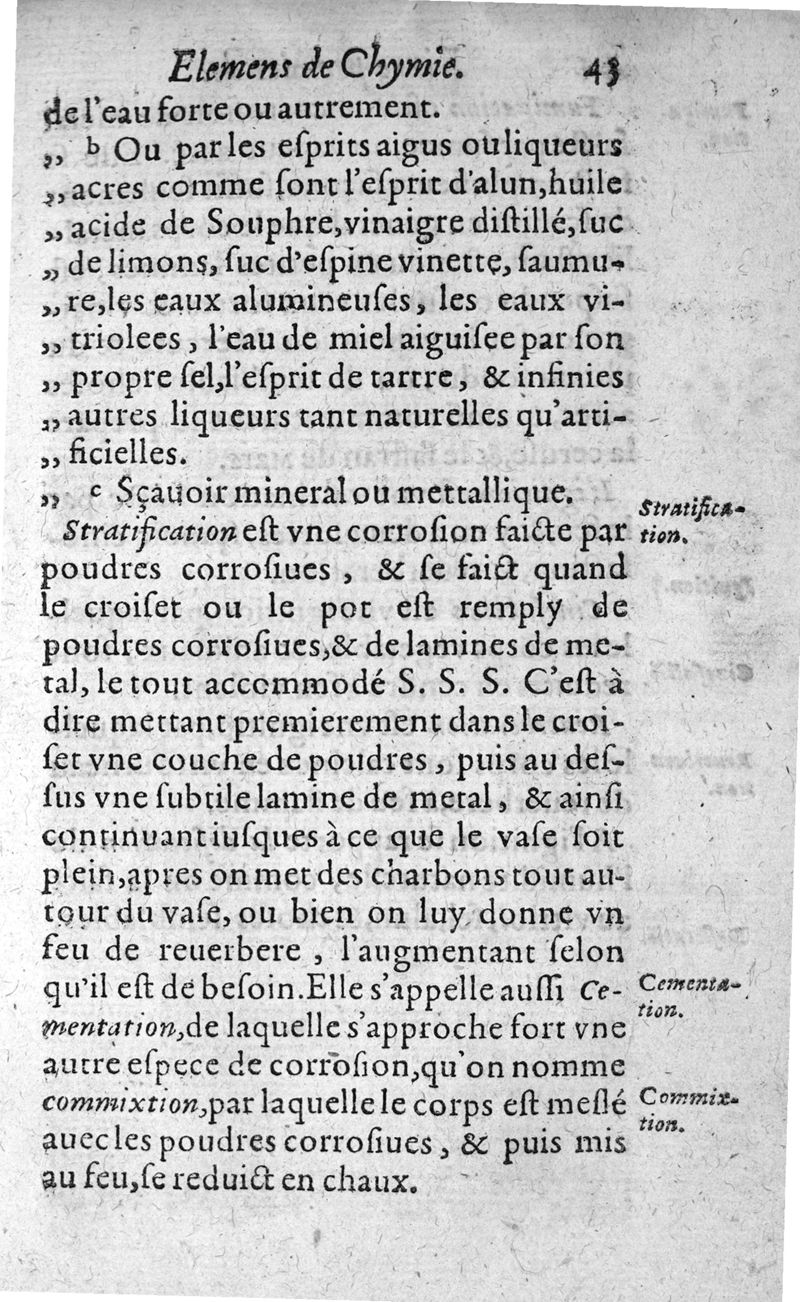 Elemens de Chymie. 43
de l'eau forte ou autrement.
„ b Ou par les eſprits aigus ou liqueurs
„ acres comme ſont l'eſprit d'alun, huile
„ acide de Souphre, vinaigre diſtillé, ſuc
„ de limons, ſuc d'eſpine vinette, ſaumu-
„ re, les eaux alumineuſes, les eaux vi-
„ triolees, l'eau de miel aiguiſee par ſon
„ propre ſel, l'eſprit de tartre, & infinies
„ autres liqueurs tant naturelles qu'arti-
„ ficielles.
„ c Sçauoir mineral ou mettallique.
Stratification eſt vne corroſion faicte par
poudres corroſiues, & ſe faict quand
le croiſet ou le pot eſt remply de
poudres corroſiues, & de lamines de me-
tal, le tout accommodé S. S. S. C'eſt à
dire mettant premierement dans le croi-
ſet vne couche de poudres, puis au deſ-
ſus vne ſubtile lamine de metal, & ainſi
continuant iuſques à ce que le vaſe ſoit
plein, apres on met des charbons tout au-
tour du vaſe, ou bien on luy donne vn
feu de reuerbere, l'augmentant ſelon
qu'il eſt de beſoin. Elle s'appelle auſſi Ce-
mentation, de laquelle s'approche fort vne
autre eſpece de corroſion, qu'on nomme
commixtion, par laquelle le corps eſt meſlé
auec les poudres corroſiues, & puis mis
au feu, ſe reduict en chaux.
Stratifica-
tion.
Cementa-
tion.
Commix-
tion.